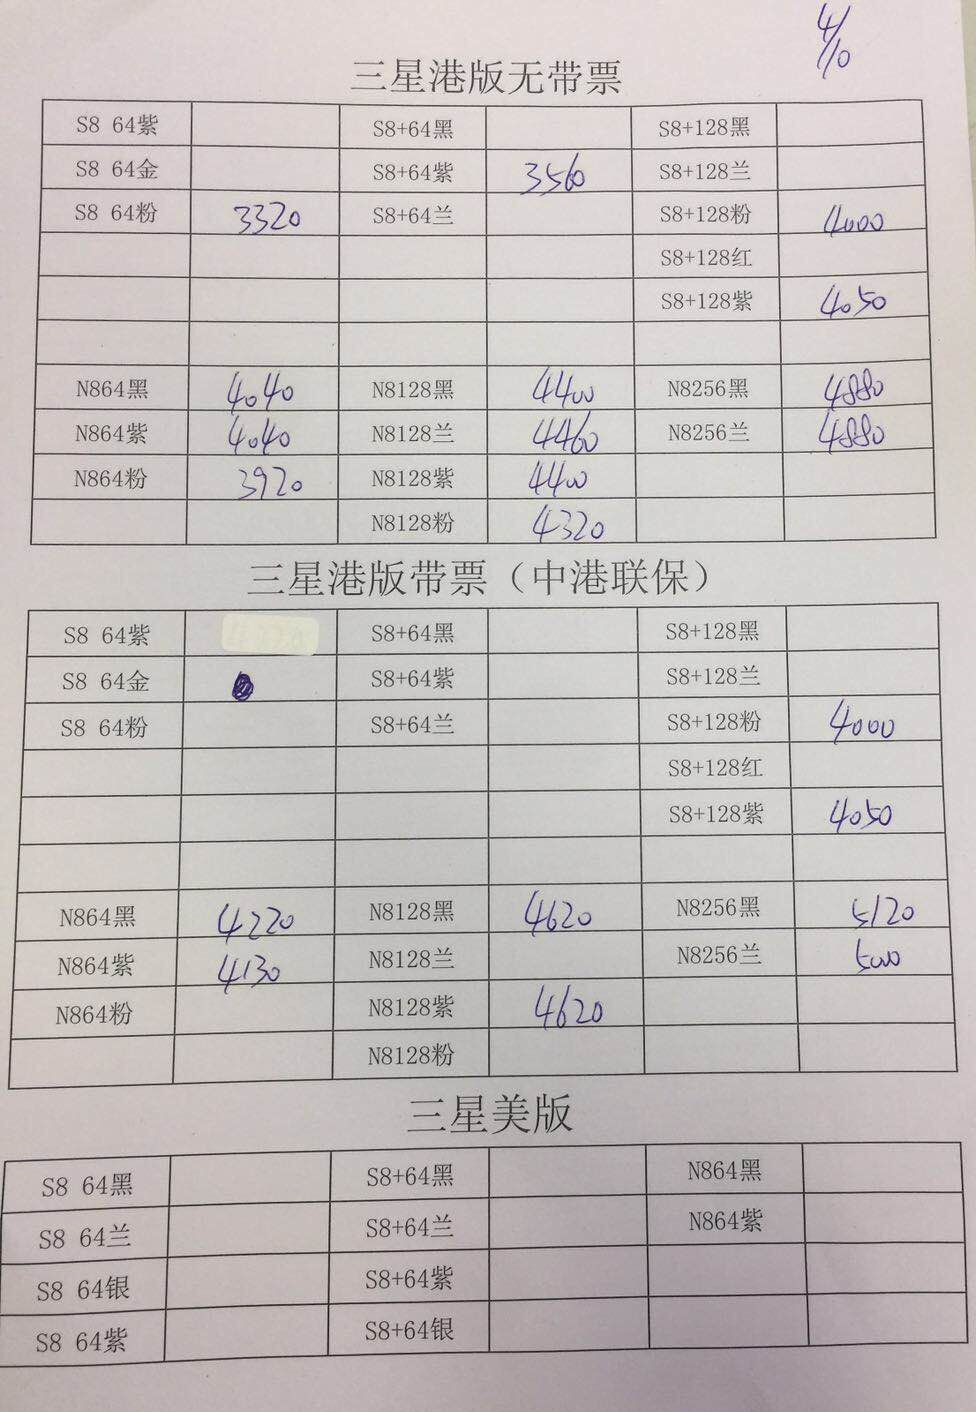 4/10
三星港版无带票
S8 64紫 S8+64黑 S8+128黑
S8 64金 S8+64紫 3560 S8+128兰
S8 64粉 3320 S8+64兰 S8+128粉 4000
S8+128红
S8+128紫 4050
N864黑 4040 N8128黑 4400 N8256黑 4880
N864紫 4040 N8128兰 4460 N8256兰 4880
N864粉 3920 N8128紫 4400
N8128粉 4320
三星港版带票（中港联保）
S8 64紫 S8+64黑 S8+128黑
S8 64金 S8+64紫 S8+128兰
S8 64粉 S8+64兰 S8+128粉 4000
S8+128红
S8+128紫 4050
N864黑 4220 N8128黑 4620 N8256黑 5120
N864紫 4130 N8128兰 N8256兰 5000
N864粉 N8128紫 4620
N8128粉
三星美版
S8 64黑 S8+64黑 N864黑
S8 64兰 S8+64兰 N864紫
S8 64银 S8+64紫
S8 64紫 S8+64银